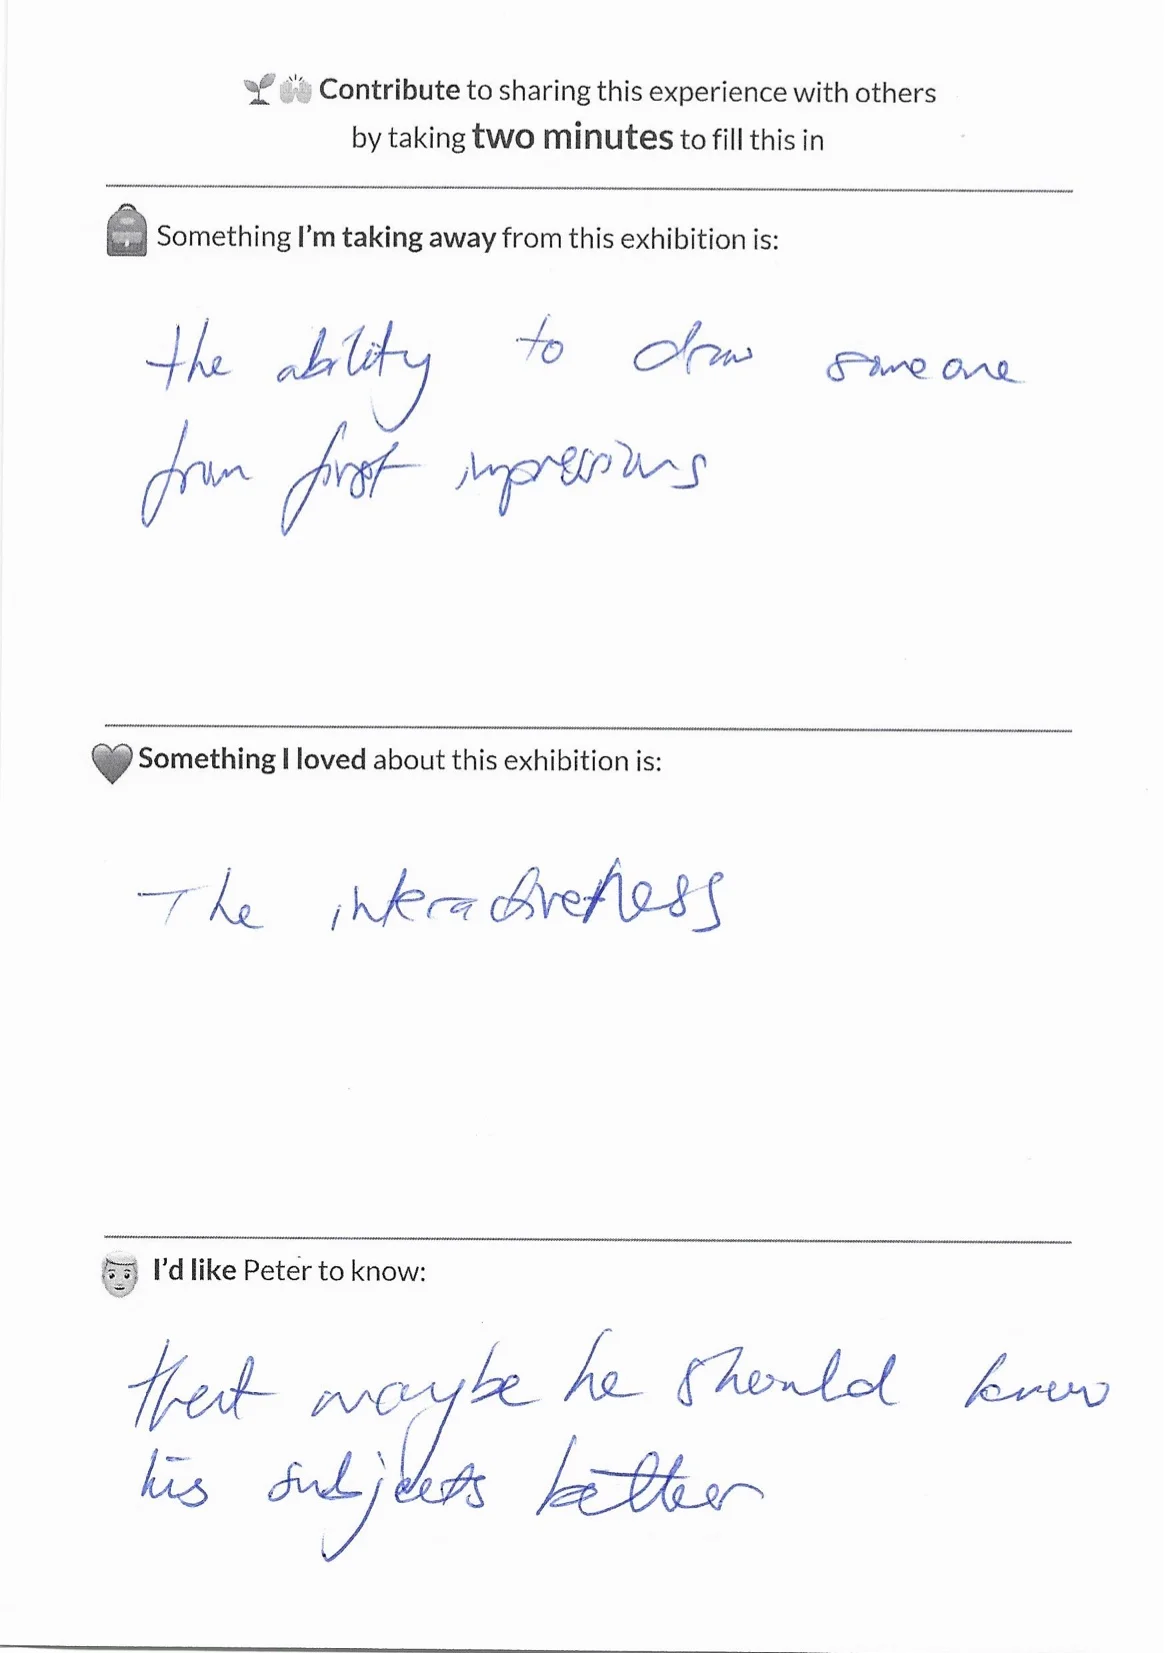 Contribute to sharing this experience with others
by taking two minutes to fill this in
Something I'm taking away from this exhibition is:
the ability to draw someone
from first impressions
Something I loved about this exhibition is:
The interactiveness
I'd like Peter to know:
that maybe he should know
his subjects better